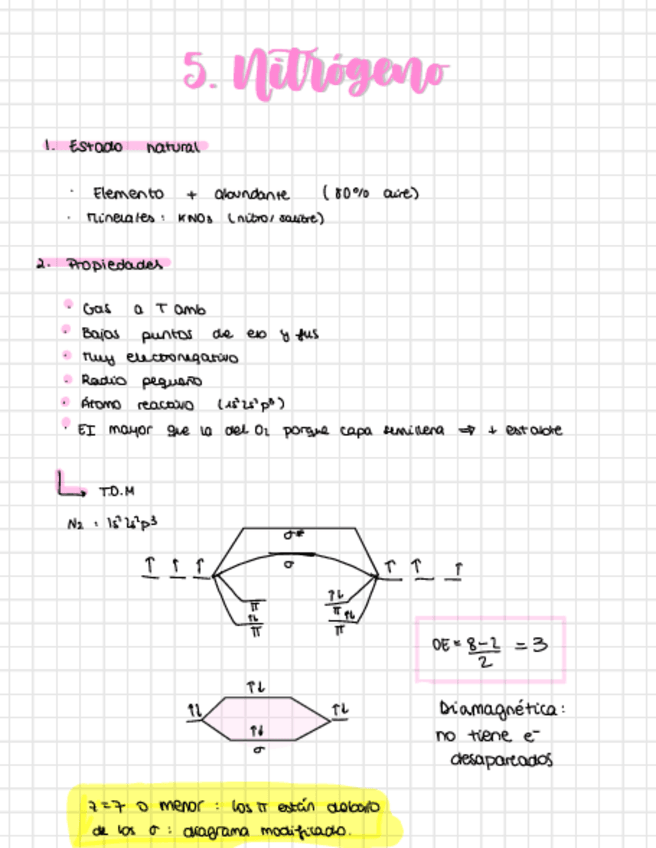 5. Nitrógeno
1. Estado natural
· Elemento + abundante (80% aire)
· Minerales: KNO₃ (nitro/salitre)
2. Propiedades
• Gas a T amb
• Bajos puntos de eb y fus
• Muy electronegativo
• Radio pequeño
• Átomo reactivo (1s²2s²p³)
• EI mayor que la del O₂ porque capa semillena ⇒ + estable
↳ T.O.M
N₂: 1s²2s²p³
σ*
↑ ↑ ↑ σ ↑ ↑ ↑
π ↑↓ π
↑↓ π ↑↓ π
OE = 8-2/2 = 3
↑↓
↑↓ ↑↓
↑↓
σ
Diamagnética:
no tiene e⁻
desapareados
z=7 o menor: los π están debajo
de los σ: diagrama modificado.